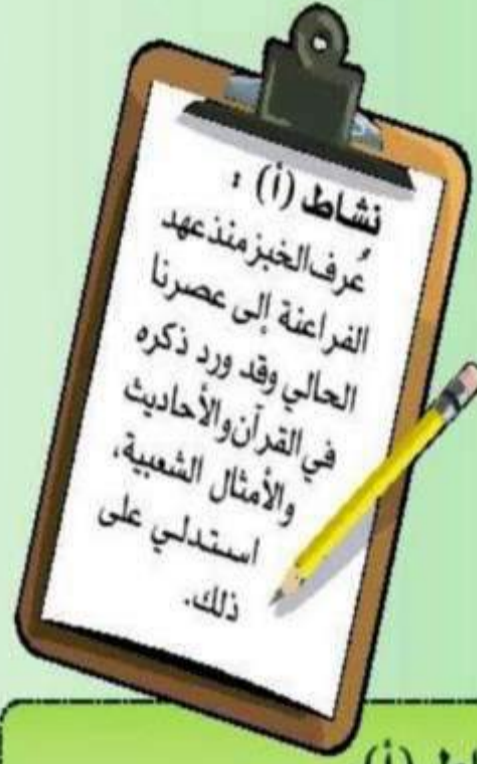 نشاط (أ) :
عُرف الخبز منذ عهد
الفراعنة إلى عصرنا
الحالي وقد ورد ذكره
في القرآن والأحاديث
والأمثال الشعبية،
استدلي على
ذلك.
(أ)